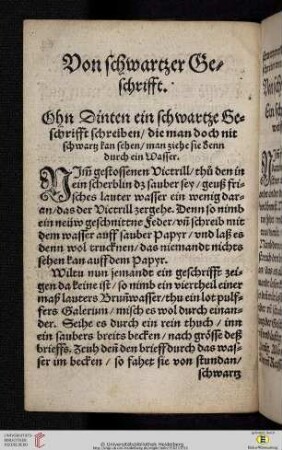 Von schwartzer Ge-
schrifft.
Ohn Dinten ein schwartze Ge-
schrifft schreiben / die man doch nit
schwartz kan sehen / man ziehe sie denn
durch ein Wasser.
NIm̃ gestossenen Victrill / thů den in
ein scherblin dz sauber sey / geuß fri-
sches lauter wasser ein wenig dar-
an / das der Victrill zergehe. Denn so nimb
ein neüw geschnittne Feder / vñ schreib mit
dem wasser auff sauber Papyr / vnd laß es
denn wol trucknen / das niemandt nichts
sehen kan auff dem Papyr.
Wiltu nun jemandt ein geschrifft zei-
gen da keine ist / so nimb ein viertheil einer
maß lauters Bruñwasser / thu ein lot pulf-
fers Galerium / misch es wol durch einan-
der. Seihe es durch ein rein thuch / inn
ein saubers breits becken / nach grösse deß
brieffs. Zeuh deñ den brieff durch das was-
ser im becken / so fahet sie von stundan /
schwartz
UNIVERSITÄTS-
BIBLIOTHEK
HEIDELBERG
© Universitätsbibliothek Heidelberg